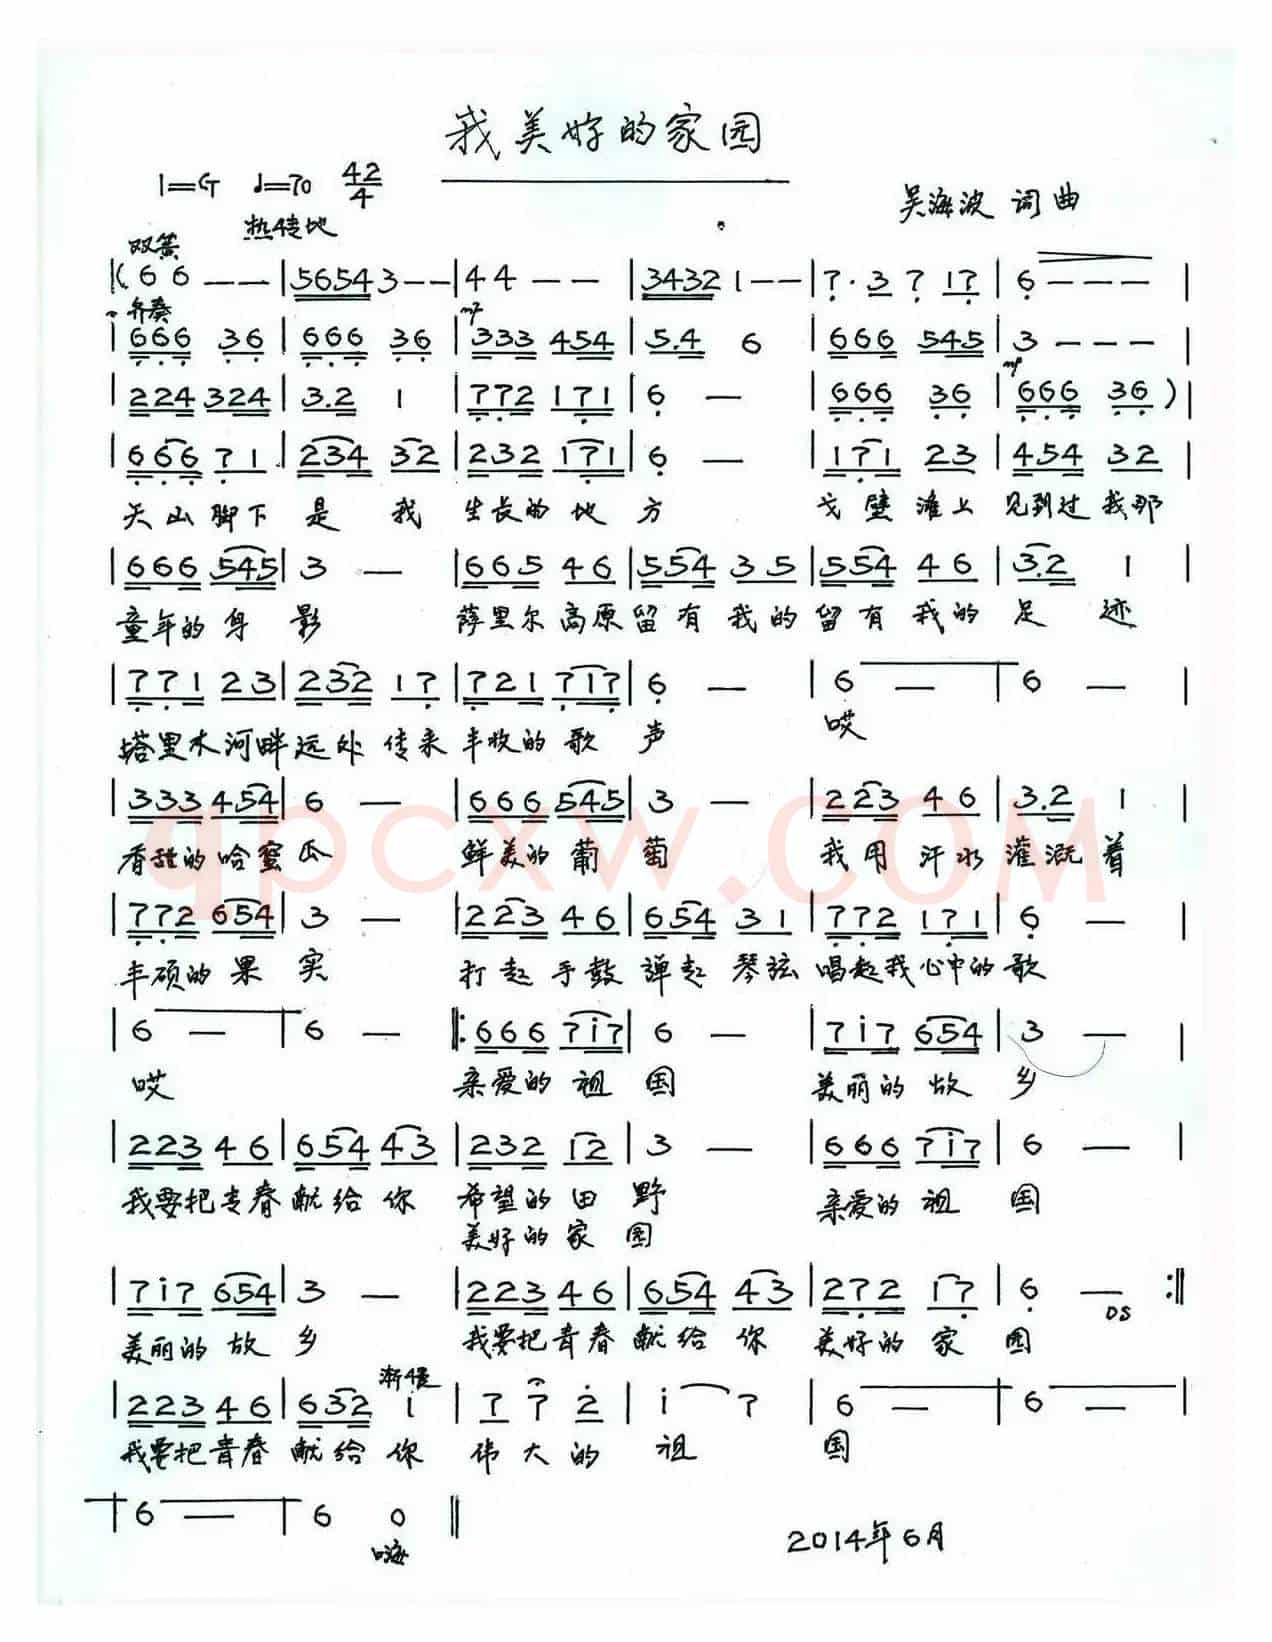 我美好的家园
1=G ♩=70 42/4
吴海波 词曲
热情地
双簧
|(6 6 — —|56543 — —|44 — —|3432 1 — —|7·3 7 17|6 — — —|
齐奏 mf
|666 36|666 36|333 454|5.4 6|666 545|3 — — —|
mf
|224 324|3.2 1|772 171|6 —|666 36|666 36)|
|666 71|234 32|232 171|6 —|171 23|454 32|
天山脚下是我生长的地方 戈壁滩上见到过我那
|666 545|3 —|665 46|554 35|554 46|3.2 1|
童年的身影 萨里尔高原留有我的留有我的足迹
|771 23|232 17|721 717|6 —|6 —|6 —|
塔里木河畔远处传来丰收的歌声 哎
|333 454|6 —|666 545|3 —|223 46|3.2 1|
香甜的哈蜜瓜 鲜美的葡萄 我用汗水灌溉着
|772 654|3 —|223 46|654 31|772 171|6 —|
丰硕的果实 打起手鼓弹起琴弦唱起我心中的歌
|6 —|6 —|:666 717|6 —|717 654|3 —|
哎 亲爱的祖国 美丽的故乡
|223 46|654 43|232 12|3 —|666 717|6 —|
我要把青春献给你 希望的田野 亲爱的祖国
美好的家园
|717 654|3 —|223 46|654 43|272 17|6 — :||
DS
美丽的故乡 我要把青春献给你 美好的家园
渐慢
|223 46|632 1|7 7 2|1 7|6 —|6 —|
我要把青春献给你 伟大的祖国
|6 —|6 0||
嗨
2014年6月
qpcxw.COM